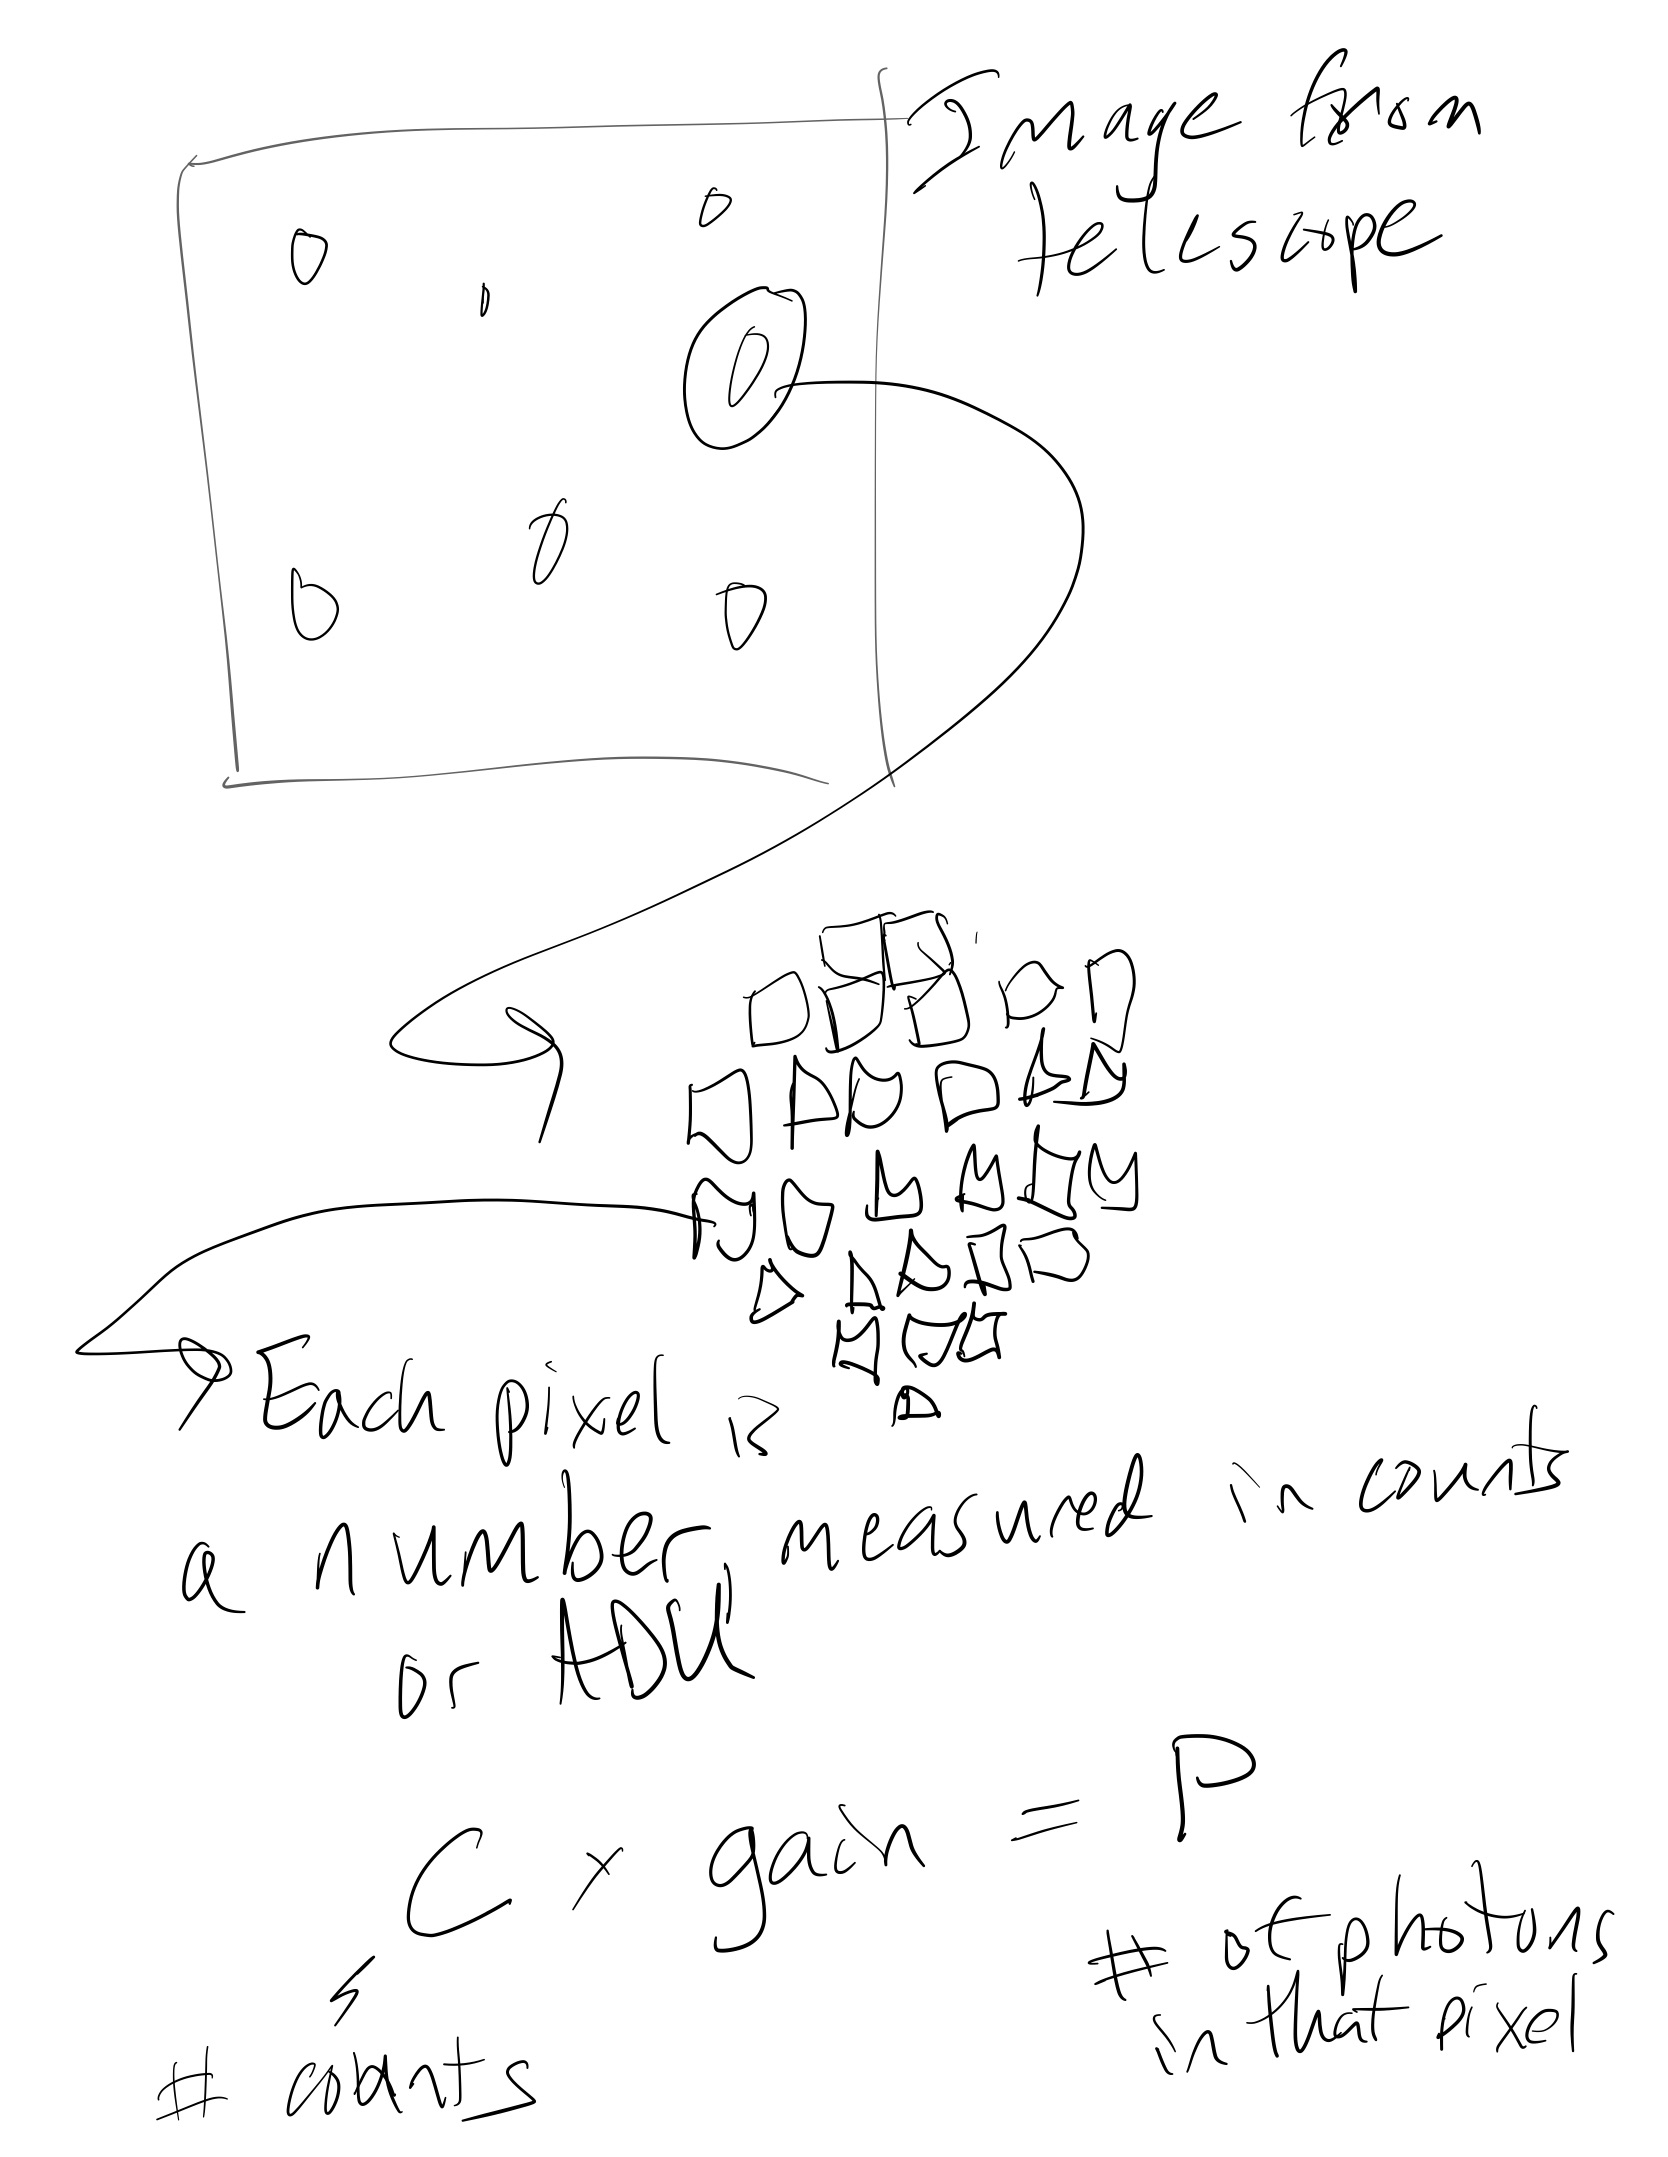 Image from
telescope
Each pixel is
a number measured in counts
or ADU
C x gain = P
# of photons
in that pixel
# counts